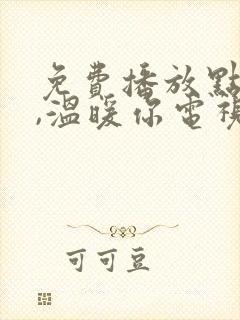 免費播放點
,溫暖你電視
可可豆